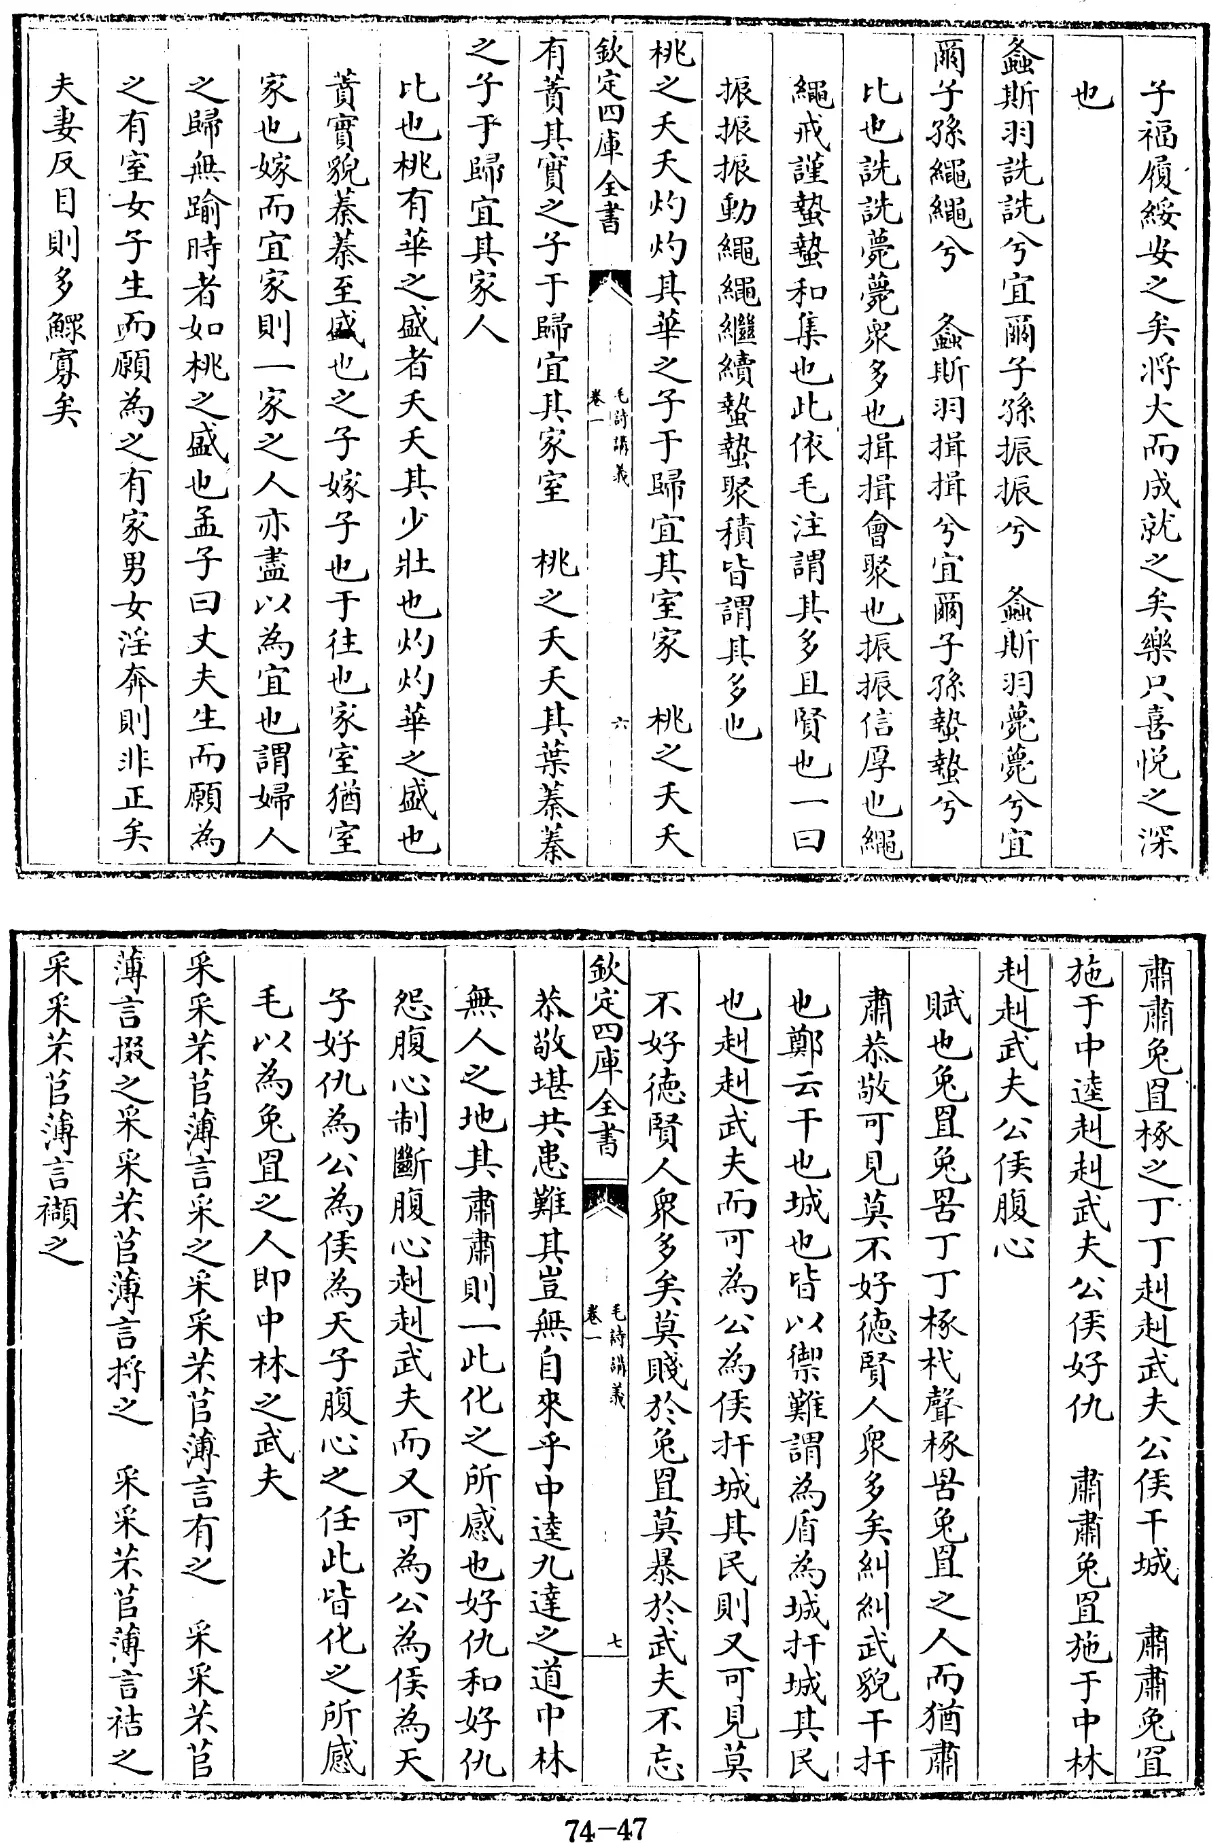 子福履綏女之矣將大而成就之矣樂只喜悅之深
也
螽斯羽詵詵兮宜爾子孫振振兮　螽斯羽薨薨兮宜
爾子孫繩繩兮　螽斯羽揖揖兮宜爾子孫蟄蟄兮
比也詵詵薨薨衆多也揖揖會聚也振振信厚也繩
繩戒謹蟄蟄和集也此依毛注謂其多且賢也一曰
振振振動繩繩繼續蟄蟄聚積皆謂其多也
桃之夭夭灼灼其華之子于歸宜其室家　桃之夭夭
欽定四庫全書
毛詩講義
卷一
六
有蕡其實之子于歸宜其家室　桃之夭夭其葉蓁蓁
之子于歸宜其家人
比也桃有華之盛者夭夭其少壯也灼灼華之盛也
蕡實貌蓁蓁至盛也之子嫁子也于往也家室猶室
家也嫁而宜家則一家之人亦盡以為宜也謂婦人
之歸無踰時者如桃之盛也孟子曰丈夫生而願為
之有室女子生而願為之有家男女淫奔則非正矣
夫妻反目則多鰥寡矣
肅肅兔罝椓之丁丁赳赳武夫公侯干城　肅肅兔罝
施于中逵赳赳武夫公侯好仇　肅肅兔罝施于中林
赳赳武夫公侯腹心
賦也兔罝兔罟丁丁椓杙聲椓罟兔罝之人而猶肅
肅恭敬可見莫不好德賢人衆多矣糾糾武貌干扞
也鄭云干也城也皆以禦難謂為盾為城扞城其民
也赳赳武夫而可為公為侯扞城其民則又可見莫
不好德賢人衆多矣莫賤於兔罝莫暴於武夫不忘
欽定四庫全書
毛詩講義
卷一
七
恭敬堪共患難其豈無自來乎中逵九達之道中林
無人之地其肅肅則一此化之所感也好仇和好仇
怨腹心制斷腹心赳赳武夫而又可為公為侯為天
子好仇為公為侯為天子腹心之任此皆化之所感
毛以為兔罝之人即中林之武夫
采采芣苢薄言采之采采芣苢薄言有之　采采芣苢
薄言掇之采采芣苢薄言捋之　采采芣苢薄言袺之
采采芣苢薄言襭之
74-47